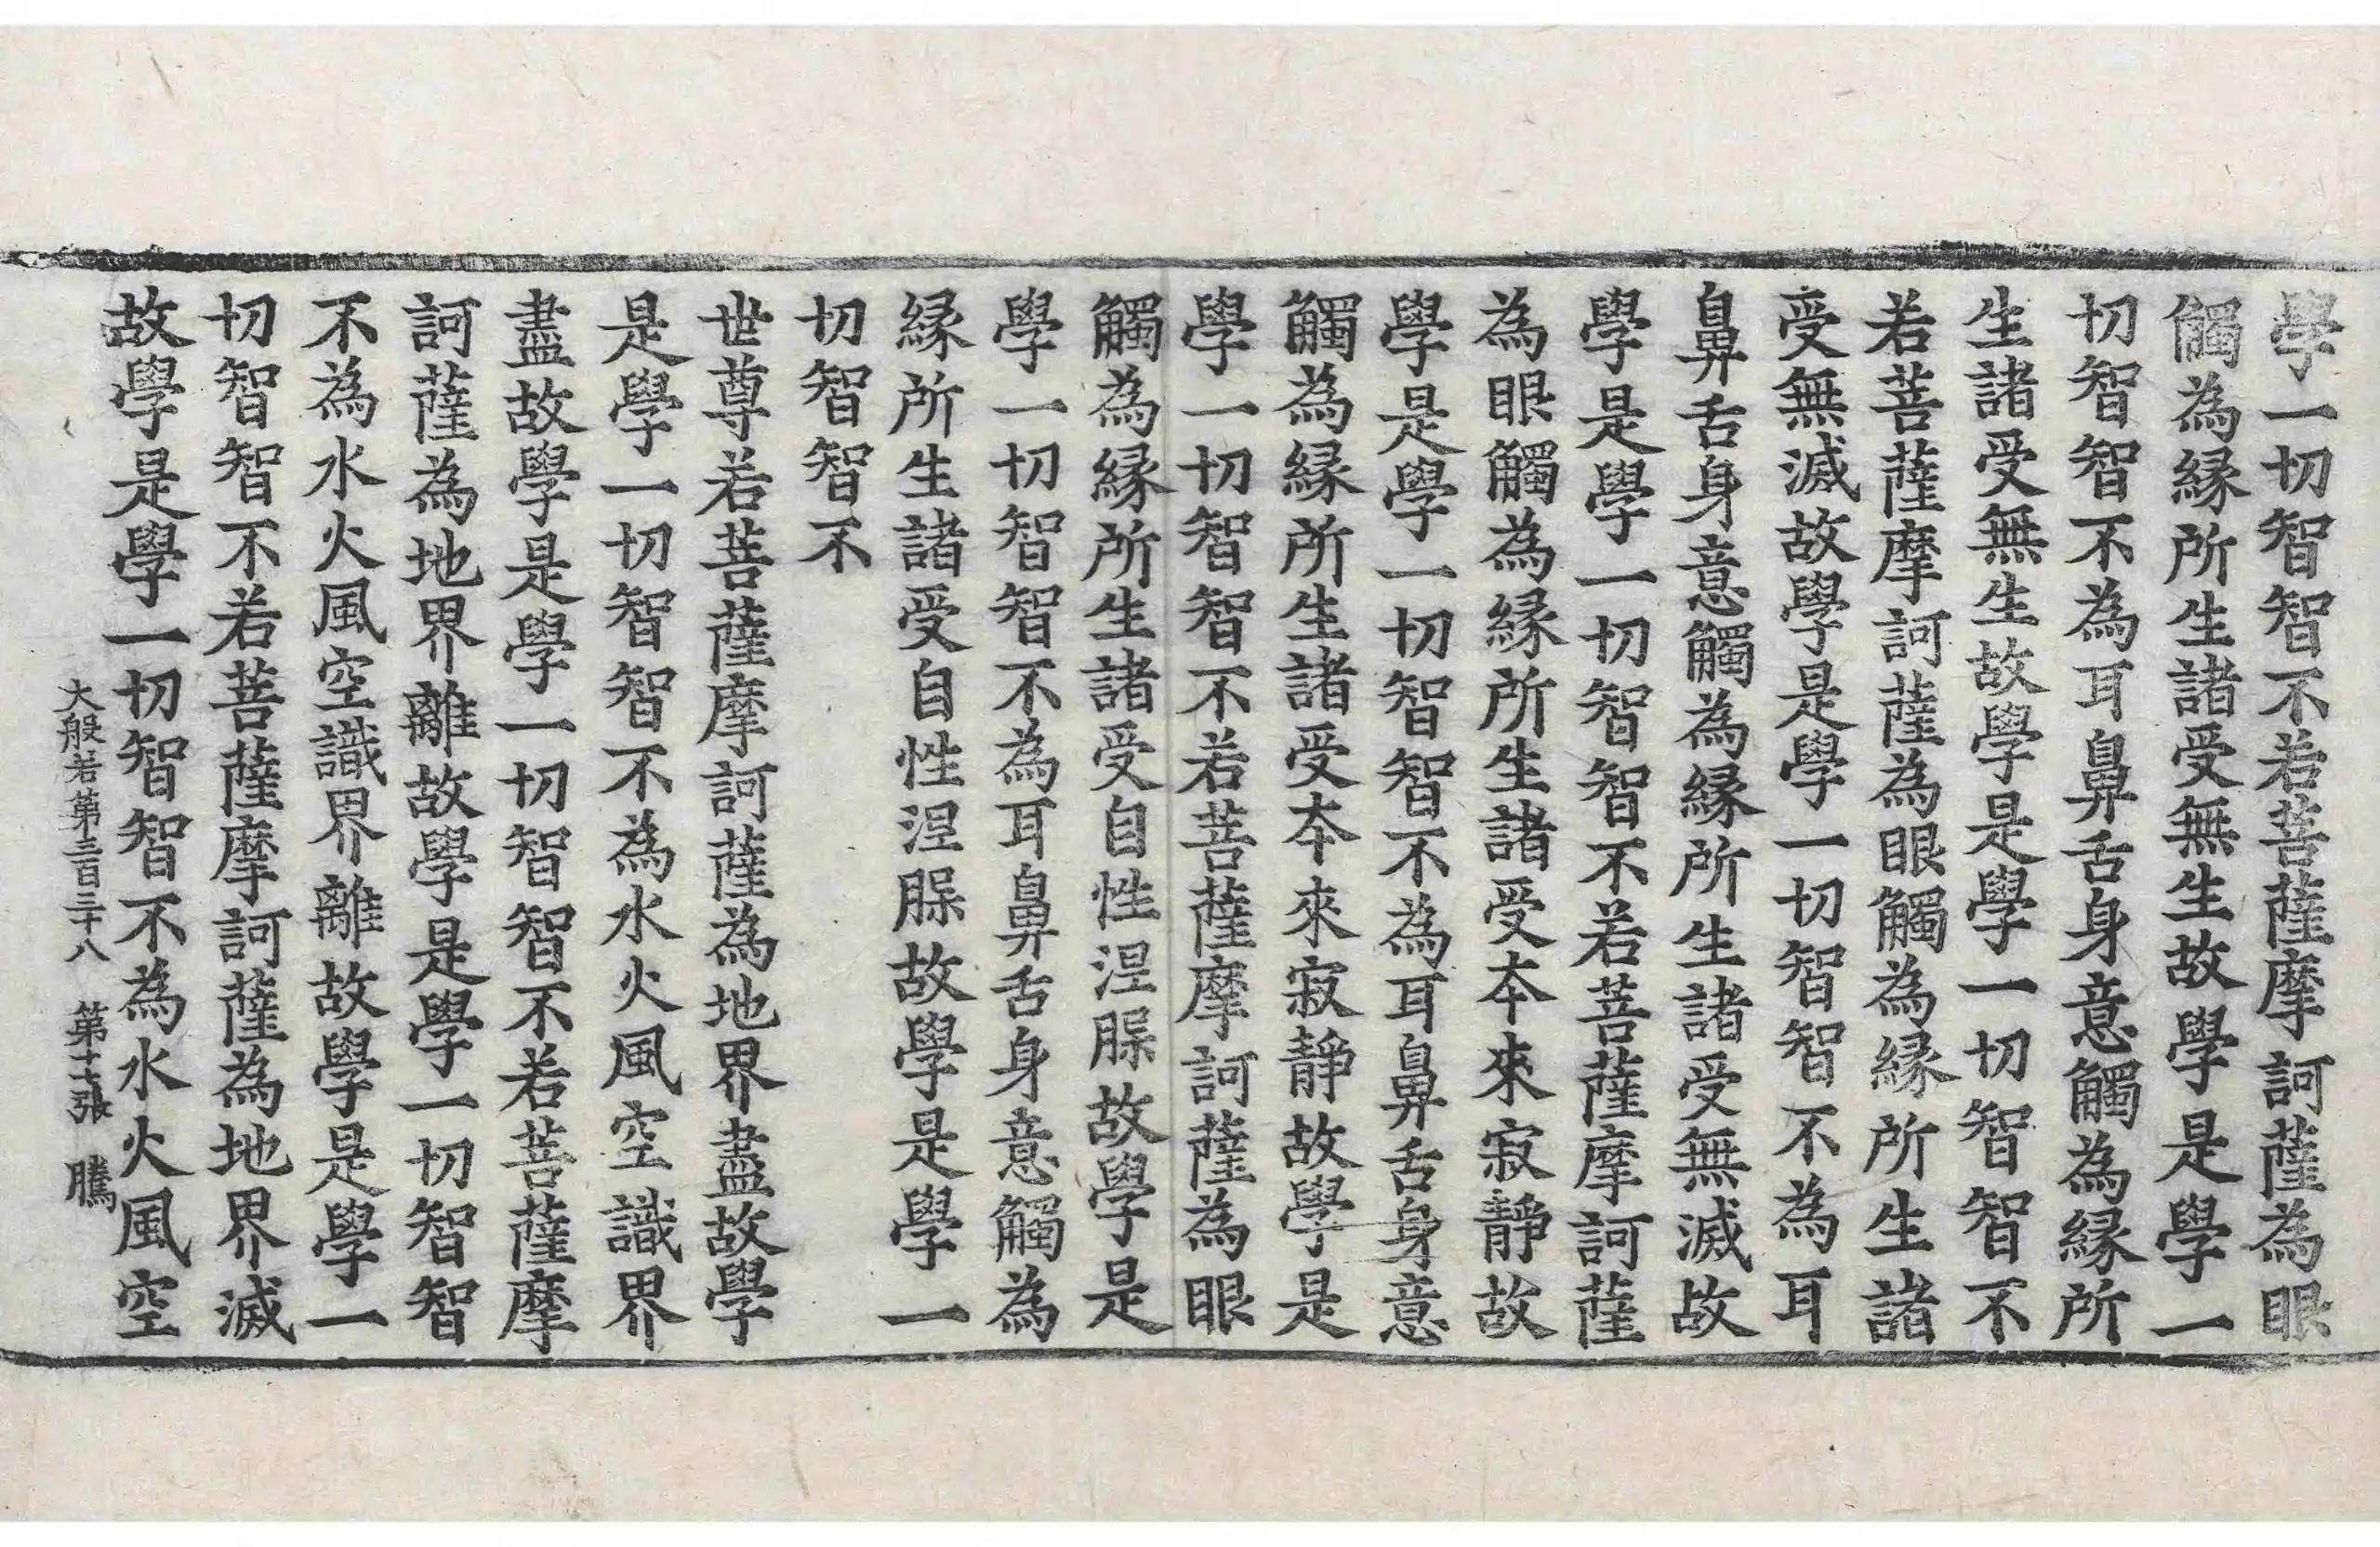 學一切智智不若菩薩摩訶薩為眼
觸為縁所生諸受無生故學是學一
切智智不為耳鼻舌身意觸為縁所
生諸受無生故學是學一切智智不
若菩薩摩訶薩為眼觸為縁所生諸
受無滅故學是學一切智智不為耳
鼻舌身意觸為縁所生諸受無滅故
學是學一切智智不若菩薩摩訶薩
為眼觸為縁所生諸受本來寂靜故
學是學一切智智不為耳鼻舌身意
觸為縁所生諸受本來寂靜故學是
學一切智智不若菩薩摩訶薩為眼
觸為縁所生諸受自性涅脲故學是
學一切智智不為耳鼻舌身意觸為
縁所生諸受自性涅脲故學是學一
切智智不
世尊若菩薩摩訶薩為地界盡故學
是學一切智智不為水火風空識界
盡故學是學一切智智不若菩薩摩
訶薩為地界離故學是學一切智智
不為水火風空識界離故學是學一
切智智不若菩薩摩訶薩為地界滅
故學是學一切智智不為水火風空
大般若第三百三十八 第十二張 騰